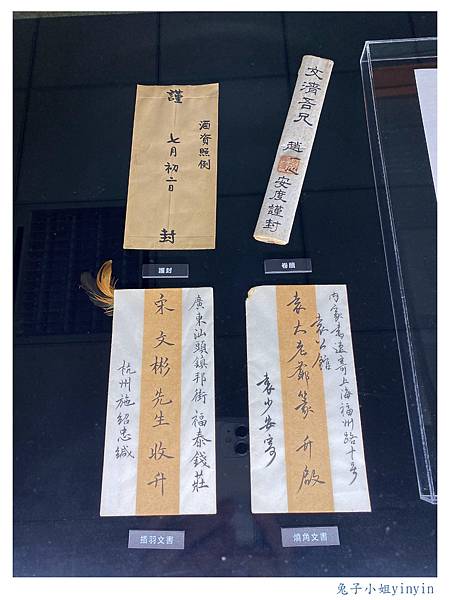 謹
酒資照例
七月初二日
封
護封
文濤吾兄
趙
安度謹封
卷牘
廣東汕頭鎮邦街福泰錢莊
宋文彬先生收升
杭州施紹忠緘
插羽文書
內家書速寄上海福州路十号
袁公館
袁大老爺篆升啟
袁少安寄
燒角文書
兔子小姐yinyin